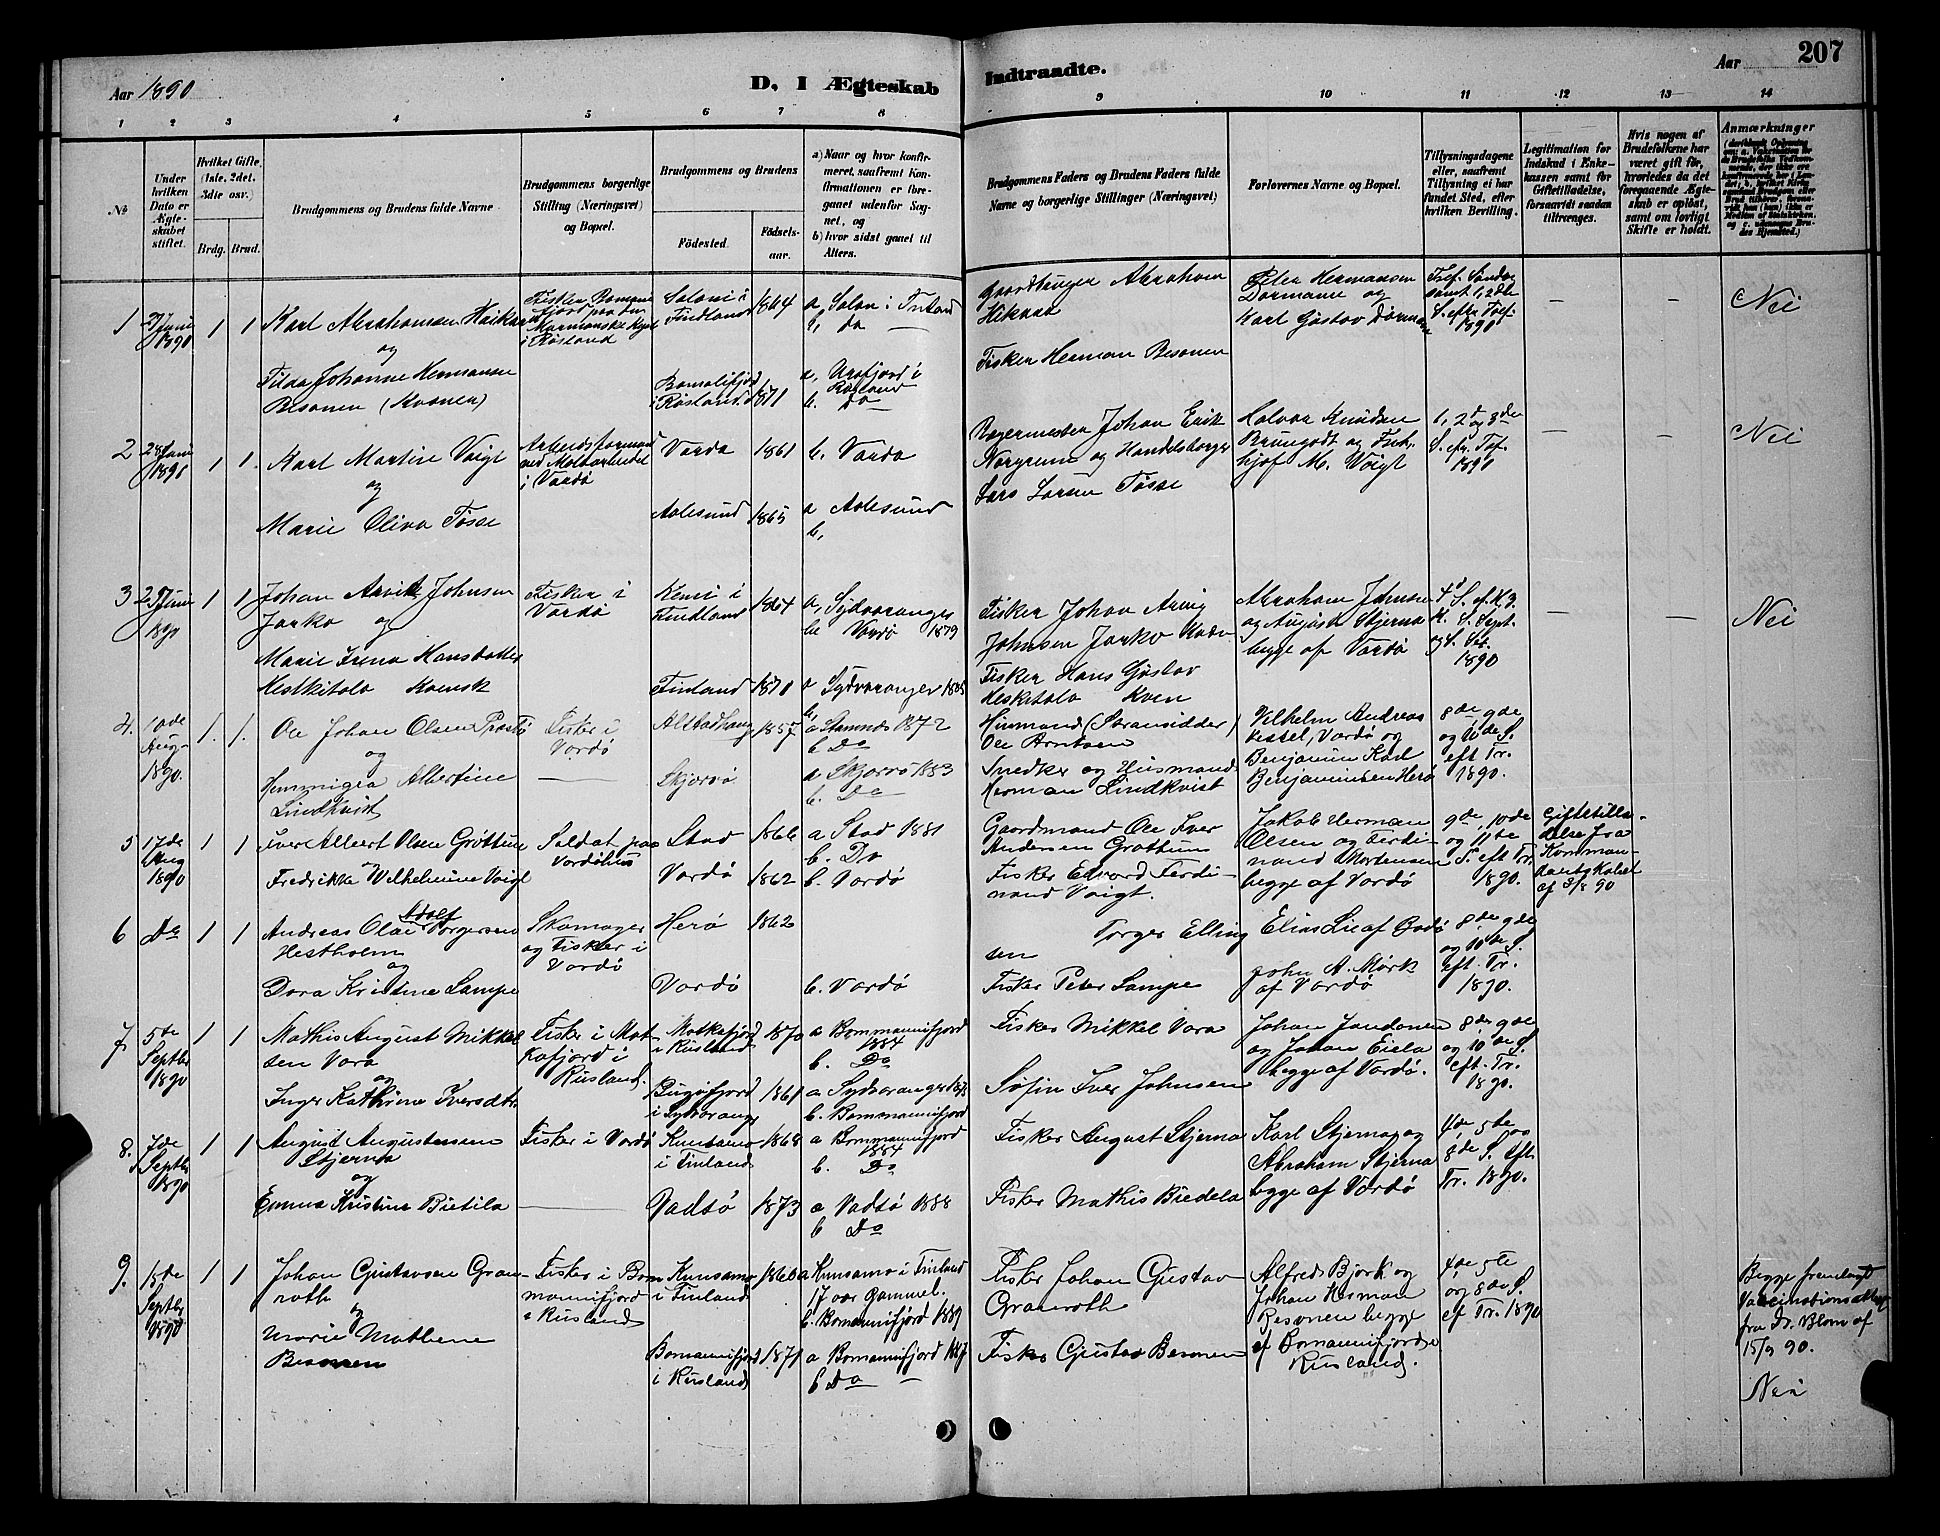 Aar 1890
D. I Ægteskab
Indtraadte.
Aar 207
1 2 3 4 5 6 7 8 9 10 11 12 13 14
№
Under hvilken Dato er Ægteskabet stiftet.
Hvilket Gifte, (1ste, 2det, 3die osv.)
Brdg. Brud.
Brudgommens og Brudens fulde Navne.
Brudgommens borgerlige Stilling (Næringsvei) og Bopæl.
Brudgommens og Brudens
Fødested.
Fødselsaar.
a) Naar og hvor konfirmeret, saafremt Konfirmationen er foregaaet udenfor Sognet, og
b) hvor sidst gaaet til Alters.
Brudgommens Faders og Brudens Faders fulde Navne og borgerlige Stillinger (Næringsvei)
Forlovernes Navne og Bopæl.
Tillysningsdagene eller, saafremt Tillysning ei har fundet Sted, efter hvilken Bevilling.
Legitimation for Indskud i Enkekassen samt for Giftetilladelse, forsaavidt saadan tiltrænges.
Hvis nogen af Brudefolkene har været gift før, hvorledes da det foregaaende Ægteskab er opløst, samt om lovligt Skifte er holdt.
Anmærkninger
1 Juni 1890 1 1
Karl Abrahamsen Haika
og
Tilda Johanne Hermansen
Besonen (Kvonen)
Fisker
i Rusland
Saloni i
Findland 1864
a, Salon i Finland
b, do
i Rusland 1871
i Rusland
b. Do
Gaardbruger Abraham
Fisker Herman Besonen
Peter Hermansen
Dormann og
Karl Gustav Dormann
1890
— — Nei
2 28 Juni 1890 1 1.
Karl Martin Voigt
og
Marie Oliva Tosse
Arbeidsformand
i Vardø
Vardø 1861 b. Vardø
Aalesund 1865 a Aalesund
b,
Johan Erik
og Handelsborger
Lars Larsen Tosse
Halvor Knudsen
Brungodt og
M. Voigt
1, 2d og 3de
S. eftr. Tref.
1890
— — Nei
3 2 Juni 1890 1 1
Johan Arvid Johnsen
Jarko og
Marie Irena Hansdatter
Heskitalo Kvensk
Fisker i
Vardø
Kemi i
Findland 1864
a, Sydvaranger
b. Vardø 1879
Finland 1870 a Sydvaranger
Fisker Johan
Johnsen Jarko
Fisker Hans Gustav
Heskitalo Kven
Abraham Johnsen
og August Stjerna
begge af Vardø
1890
— — Nei
4. 10de Aug. 1890. 1. 1.
Ole Johan Olsen Præstø
og
Hemmigea Albertine
Lindkvist
Fisker i
Vardø
Alstadhaug 1857 a Stamnes 1872
b Do
Skjervø a Skjervø 1883
b. Do
Husmand (Stransidder)
Ole Arntsen
Snedker og Husmand
Herman Lindkvist
Vilhelm Andreas
Vessel, Vardø og
Benjamin Karl
Benjaminsen Herø
8de 9de
og 10de S.
eft Tr.
1890.
5 17de Aug 1890 1 1
Iver Albert Olsen Grøttum
Fredrikke Wilhelmine Voigt
Soldat paa
Vardøhus
Stod 1866 a Stod 1881
b. Do
Vardø 1862 b. Vardø
Gaardmand Ole Iver
Andersen Grøttum
Fisker Edvard Ferdi-
nand Voigt.
Jakob Herman
Olsen og Ferdi-
nand Mortensen
begge af Vardø
9de, 10de
og 11de
S. eft Tr.
1890.
Giftetilla-
delse fra
Komman-
dantskabet
af 3/8 90
6 Do 1 1
Andreas Olai Adolf Torgersen
Hestholm
og
Dora Kristine Lampe
Skomager
og Fisker i
Vardø
Herø 1862
Vardø b. Vardø
Torger Elling
sen
Fisker Peter Lampe
Elias Lie af Bodø
John A. Mørk
af Vardø
8de 9de
og 10de S.
eft. Tr.
1890.
7 5te Septbr 1890 1 1
Mathis August Mikkel
sen Vara
og
Inger Kathrine Iversdtr
Fisker i Mat-
kafjord i
Rusland.
Matkafjord
i Rusland 1870
a Bommannifjord
1884
b. Do
Bugøfjord
i Sydvarang. 1861
a. Sydvaranger
b. Bommannifjord
Fisker Mikkel Vara
Søfin Iver Johnsen
Johan Jandonen
og Johan Eiela
begge af Vardø.
8de 9de
og 10de S.
eft. Tr.
1890.
8. 7de Septbr 1890 1 1
August Augustensen
Stjerna
og
Emma Kristine Bietila
Fisker i Vardø
Kunsamo
i Finland 1868
a Bommannifjord
1884
b. Do
Vadsø 1873 a Vadsø 1888
b Do
Fisker August Stjerna
Fisker Mathis Biedela
Karl Stjerna og
Abraham Stjerna
begge af Vardø
4de 5te og
8de S. eft
Tr. 1890.
9. 15de Septbr 1890 1 1
Johan Gustavsen Gran-
roth
og
Marie Mathene
Besonen
Fisker i Bom
mannifjord
i Rusland
Kunsamo
i Finland 1860
a Kunsamo i Finland
17 aar Gammel.
b. Bomannifjord 1889
Bomannifjord
i Rusland 1871
a Bomannifjord 1887
b Do
Fisker Johan Gustav
Granroth
Fisker Gustav Besonen
Alfred Bjork og
Johan Herman
Besonen begge
af Bomannifjord i
Rusland.
4de 5te
og 8de S.
ef Tr. 1890
Begge fremlagt
Vaccinationsattest
fra Dr. Blom af
15/9 90.
Nei